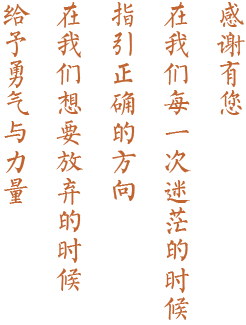 感谢有您
在我们每一次迷茫的时候
指引正确的方向
在我们想要放弃的时候
给予勇气与力量